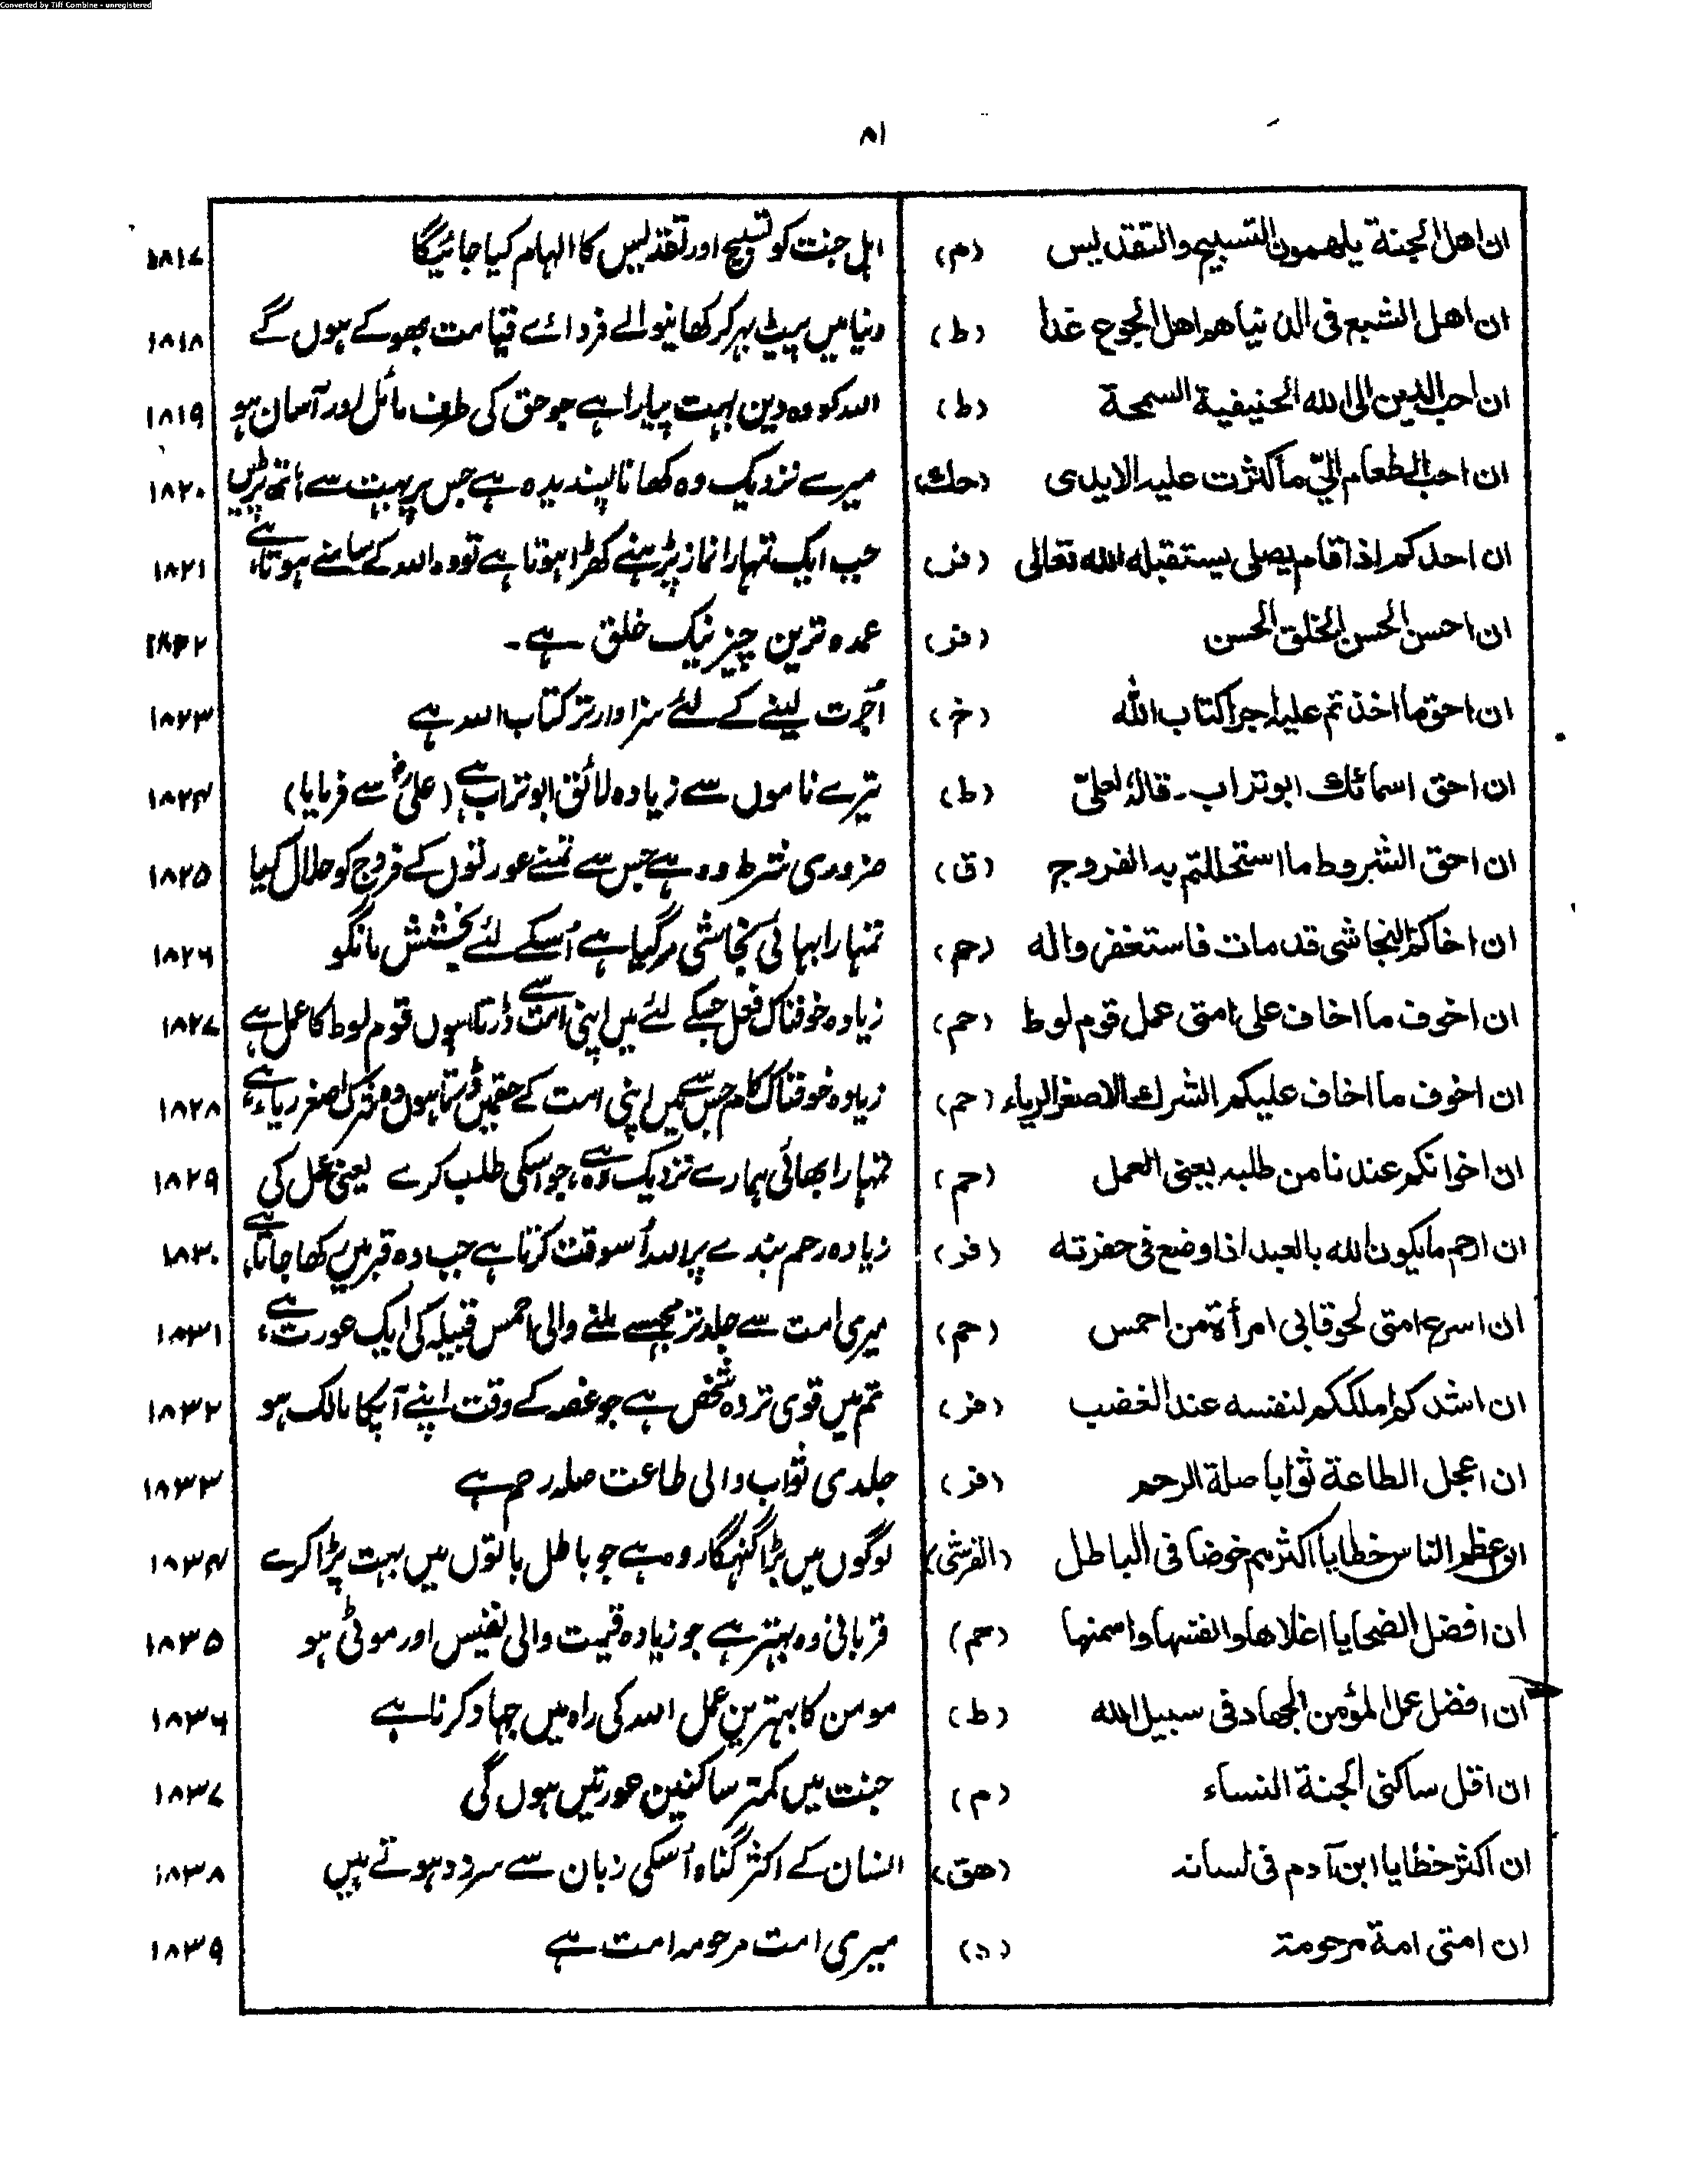 Converted by Tiff Combine - unregistered
۸۱
ان اهل الجنة يلهمون التسبيح والتقديس (م) اہل جنت کو تسبیح اور تقدیس کا الہام کیا جائیگا ۱۸۱۷
ان اهل الشبع فى الدنيا هم اهل الجوع غدا (ط) دنیا میں پیٹ بہر کر کھانیوالے فردائے قیامت بھوکے ہوں گے ۱۸۱۸
ان احب الدين الى الله الحنيفية السمحة (ط) اللہ کو وہ دین بہت پیارا ہے جو حق کی طرف مائل اور آسان ہو ۱۸۱۹
ان احب الطعام الىّ ما كثرت عليه الايدى (حك) میرے نزدیک وہ کھانا پسندیدہ ہے جس پر بہت سے ہاتھ پڑیں ۱۸۲۰
ان احدكم اذا قام يصلى يستقبله الله تعالى (فر) جب ایک تمہارا نماز پڑہنے کھڑا ہوتا ہے تو وہ اللہ کے سامنے ہوتا ہے ۱۸۲۱
ان احسن الحسن الخلق الحسن (فر) عمدہ ترین چیز نیک خلق ہے۔ ۱۸۲۲
ان احق ما اخذتم عليه اجرا كتاب الله (خ) اُجرت لینے کے لئے سزاوار تر کتاب اللہ ہے ۱۸۲۳
ان احق اسمائك ابو تراب۔ قاله لعلىّ (ط) تیرے ناموں سے زیادہ لائق ابو تراب ہے (علیؓ سے فرمایا) ۱۸۲۴
ان احق الشروط ما استحللتم به الفروج (ق) ضروری شرط وہ ہے جس سے تمنے عورتوں کے فروج کو حلال کیا ۱۸۲۵
ان اخاكم النجاشى قد مات فاستغفروا له (حم) تمہارا بہائی نجاشی مر گیا ہے اُسکے لئے بخشش مانگو ۱۸۲۶
ان اخوف ما اخاف على امتى عمل قوم لوط (حم) زیادہ خوفناک فعل جسکے لئے میں اپنی امت سے ڈرتا ہوں قوم لوط کا عمل ہے ۱۸۲۷
ان اخوف ما اخاف عليكم الشرك الاصغر الرياء (حم) زیادہ خوفناک کام جس سے میں اپنی امت کے حقمیں ڈرتا ہوں وہ شرک اصغر ریاء ہے ۱۸۲۸
ان اخوانكم عندنا من طلبه يعنى العمل (حم) تمہارا بھائی ہمارے نزدیک وہ ہے جو اسکی طلب کرے یعنی عمل کی ۱۸۲۹
ان ارحم ما يكون الله بالعبد اذا وضع فى حفرته (فر) زیادہ رحم بندے پر اللہ اُسوقت کرتا ہے جب وہ قبر میں رکھا جاتا ہے ۱۸۳۰
ان اسرع امتى لحوقا بى امرأة من احمس (حم) میری امت سے جلد تر مجھسے ملنے والی احمس قبیلہ کی ایک عورت ہے ۱۸۳۱
ان اشدكم املككم لنفسه عند الغضب (فر) تم میں قوی تر وہ شخص ہے جو غصہ کے وقت اپنے آپکا مالک ہو ۱۸۳۲
ان اعجل الطاعة ثوابا صلة الرحم (فر) جلدی ثواب والی طاعت صلہ رحم ہے ۱۸۳۳
ان اعظم الناس خطايا اكثرهم خوضا فى الباطل (القرشى) لوگوں میں بڑا گنہگار وہ ہے جو باطل باتوں میں بہت پڑا کرے ۱۸۳۴
ان افضل الضحايا اغلاها وانفسها واسمنها (حم) قربانی وہ بہتر ہے جو زیادہ قیمت والی نفیس اور موٹی ہو ۱۸۳۵
ان افضل عمل المؤمن الجهاد فى سبيل الله (ط) مومن کا بہترین عمل اللہ کی راہ میں جہاد کرنا ہے ۱۸۳۶
ان اقل ساكنى الجنة النساء (م) جنت میں کمتر ساکنین عورتیں ہوں گی ۱۸۳۷
ان اكثر خطايا ابن آدم فى لسانه (هق) انسان کے اکثر گناہ اُسکی زبان سے سرزد ہوتے ہیں ۱۸۳۸
ان امتى امة مرحومة (د) میری امت مرحومہ امت ہے ۱۸۳۹